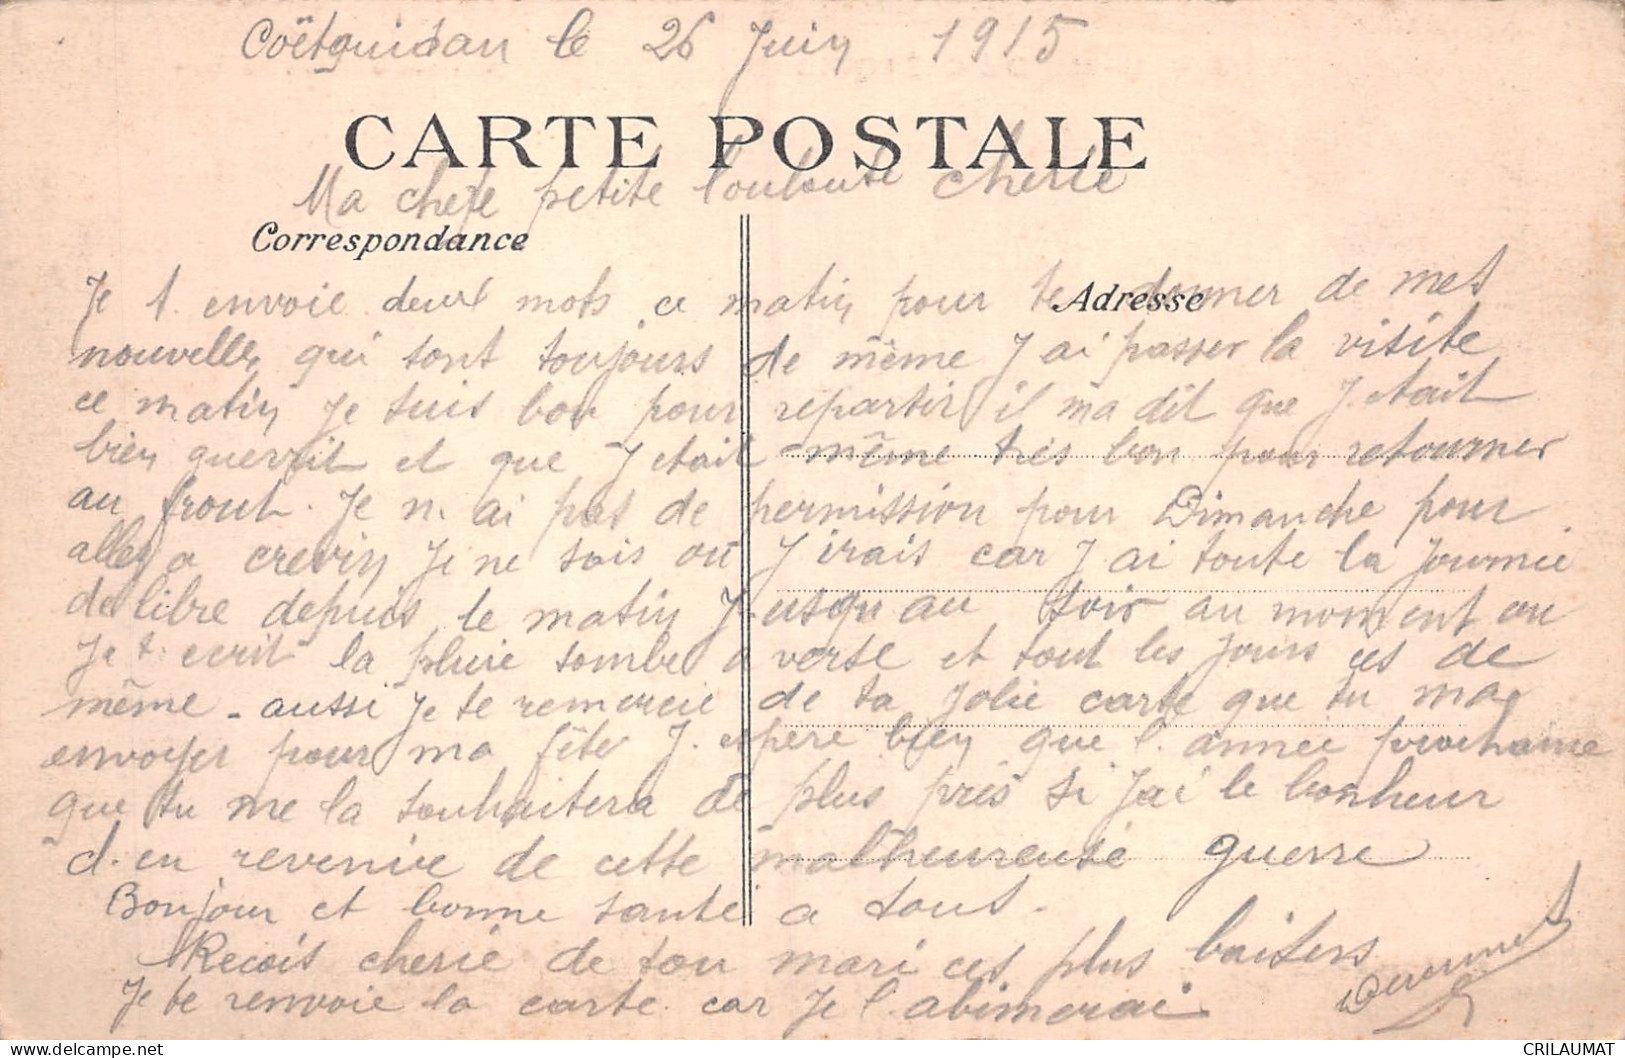 Coëtquidan le 26 Juin 1915
CARTE POSTALE
Ma chere petite Louloute cherie
Correspondance
Adresse
Je t envoie deux mots ce matin pour te donner de mes
nouvelles qui sont toujours de même J ai passer la visite
ce matin je suis bon pour repartir il ma dit que J. etait
bien guerrit et que J etait même très bon pour retourner
au front. Je n. ai pas de permission pour Dimanche pour
aller a crevin Je ne sais ou J irais car J ai toute la Journée
de libre depuis le matin Jusqu au soir au moment ou
je t. ecrit la pluie tombe a verse et tout les jours ces de
même - aussi je te remercie de ta jolie carte que tu ma
envoyer pour ma fête J. espere bien que l. année prochaine
que tu me la souhaitera de plus près si j'ai le bonheur
d. en revenir de cette malheureuse guerre
Bonjour et bonne santé a tous.
Recois cherie de ton mari ces plus baisers
Je te renvoie la carte car je l. abimerai
CRILAUMAT